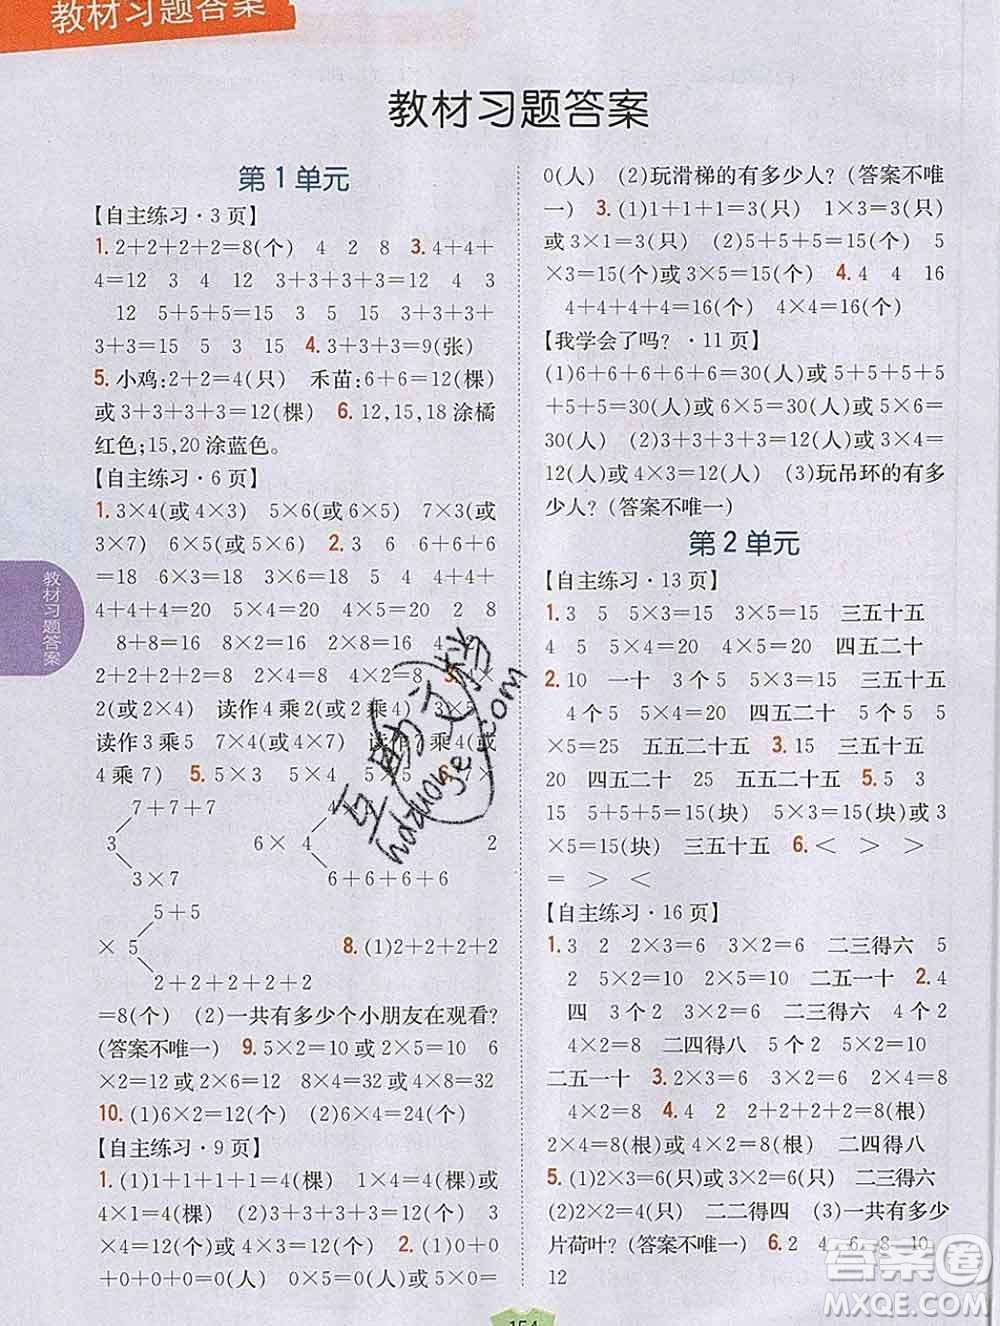 教材习题答案
教材习题答案
第1单元
【自主练习·3页】
1.2+2+2+2=8(个) 4 2 8 3.4+4+
4=12 3 4 12 3+3+3+3=12 4 3
12 5+5+5=15(个) 3+3+3+
3+3=15 5 3 15 4.3+3+3=9(张)
5.小鸡:2+2=4(只) 禾苗:6+6=12(棵)
或3+3+3+3=12(棵) 6.12,15,18涂橘
红色;15,20涂蓝色。
【自主练习·6页】
1.3×4(或4×3) 5×6(或6×5) 7×3(或
3×7) 6×5(或5×6) 2.3 6 6+6+6
=18 6×3=18 3×6=18 5 4 4+
4+4+4=20 5×4=20 4×5=20 2 8
8+8=16 8×2=16 2×8=16 4 2
2+2+2+2=8 4×2=8 2×4=8
2(或2×4) 读作4乘2(或2乘4) 3×5
读作3乘5 7×4(或4×7) 乘4(或
4乘7) 5.5×3 5×4 5×5
7+7+7
3 6× 4 2
3×7 6+6+6+6
5+5
× 5 8.(1)2+2+2+2
2+2+2+2+2
=8(个) (2)一共有多少个小朋友在观看?
(答案不唯一) 9.5×2=10或2×5=10 6
×2=12或2×6=12 8×4=32或4×8=32
10.(1)6×2=12(个) (2)6×4=24(个)
【自主练习·9页】
1.(1)1+1+1+1=4(棵) 1×4=4(棵)或
4×1=4(棵) (2)3+3+3+3=12(个) 3
×4=12(个)或4×3=12(个) 2.(1)0+0
+0+0+0=0(人) 0×5=0(人)或5×0=
0(人) (2)玩滑梯的有多少人?(答案不唯
一) 3.(1)1+1+1=3(只) 1×3=3(只)
或3×1=3(只) (2)5+5+5=15(个) 5
×3=15(个)或3×5=15(个) 4.4 4 16
4+4+4+4=16(个) 4×4=16(个)
【我学会了吗?·11页】
(1)6+6+6+6+6=30(人)或5+5+5+5
+5+5=30(人) 6×5=30(人)或5×6=
30(人) (2)3+3+3+3=12(人) 3×4=
12(人)或4×3=12(人) (3)玩吊环的有多
少人?(答案不唯一)
第2单元
【自主练习·13页】
1.3 5 5×3=15 3×5=15 三五十五
4 5 5×4=20 4×5=20 四五二十
2.10 一十 3个5 3×5=15 三五十五
4个5 4×5=20 四五二十 5个5 5
×5=25 五五二十五 3.15 三五十五
20 四五二十 25 五五二十五 5.5 3
15 5+5+5=15(块) 5×3=15(块)或3
×5=15(块) 三五十五 6.< > >
= > <
【自主练习·16页】
1.3 2 2×3=6 3×2=6 二三得六 5
2 5×2=10 2×5=10 二五一十 2.4
四 3个2 3×2=6 二三得六 4个2
4×2=8 二四得八 5个2 5×2=10
二五一十 3.2×2=4 3×2=6 2×4=8
4×2=8 4.4 2 2+2+2+2=8(根)
2×4=8(根)或4×2=8(根) 二四得八
5.(1)2×3=6(只)或3×2=6(只) 二三得六
(2)2×2=4(只) 二二得四 (3)一共有多少
片荷叶?(答案不唯一) 6.2 4 6 8 10
12
教材习题答案
互助文档
hdzuoye.com
答案圈
MXQE.COM
154